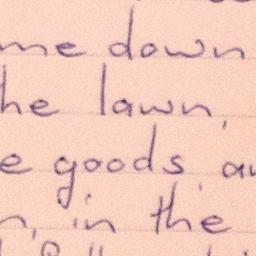 me down
he lawn,
e goods, au
n, in the